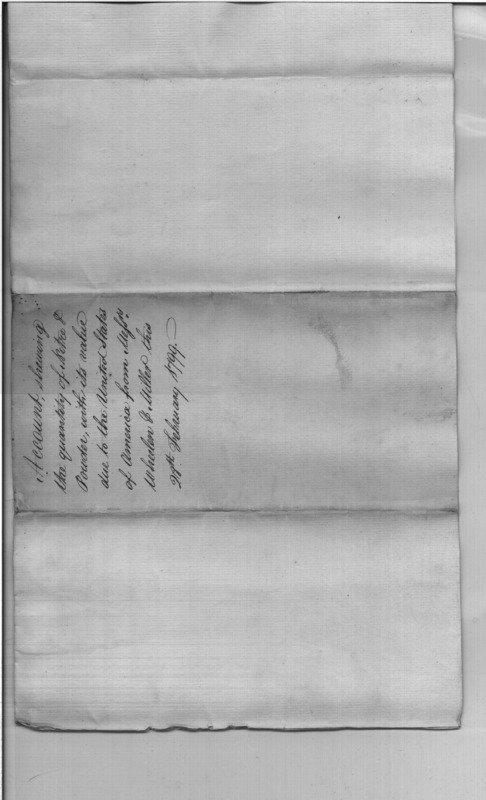 Account, shewing
the quantity of Nitre &
Powder, with its value
due to the United States
of America from Messrs
Whelen & Miller this
28th February 1799.